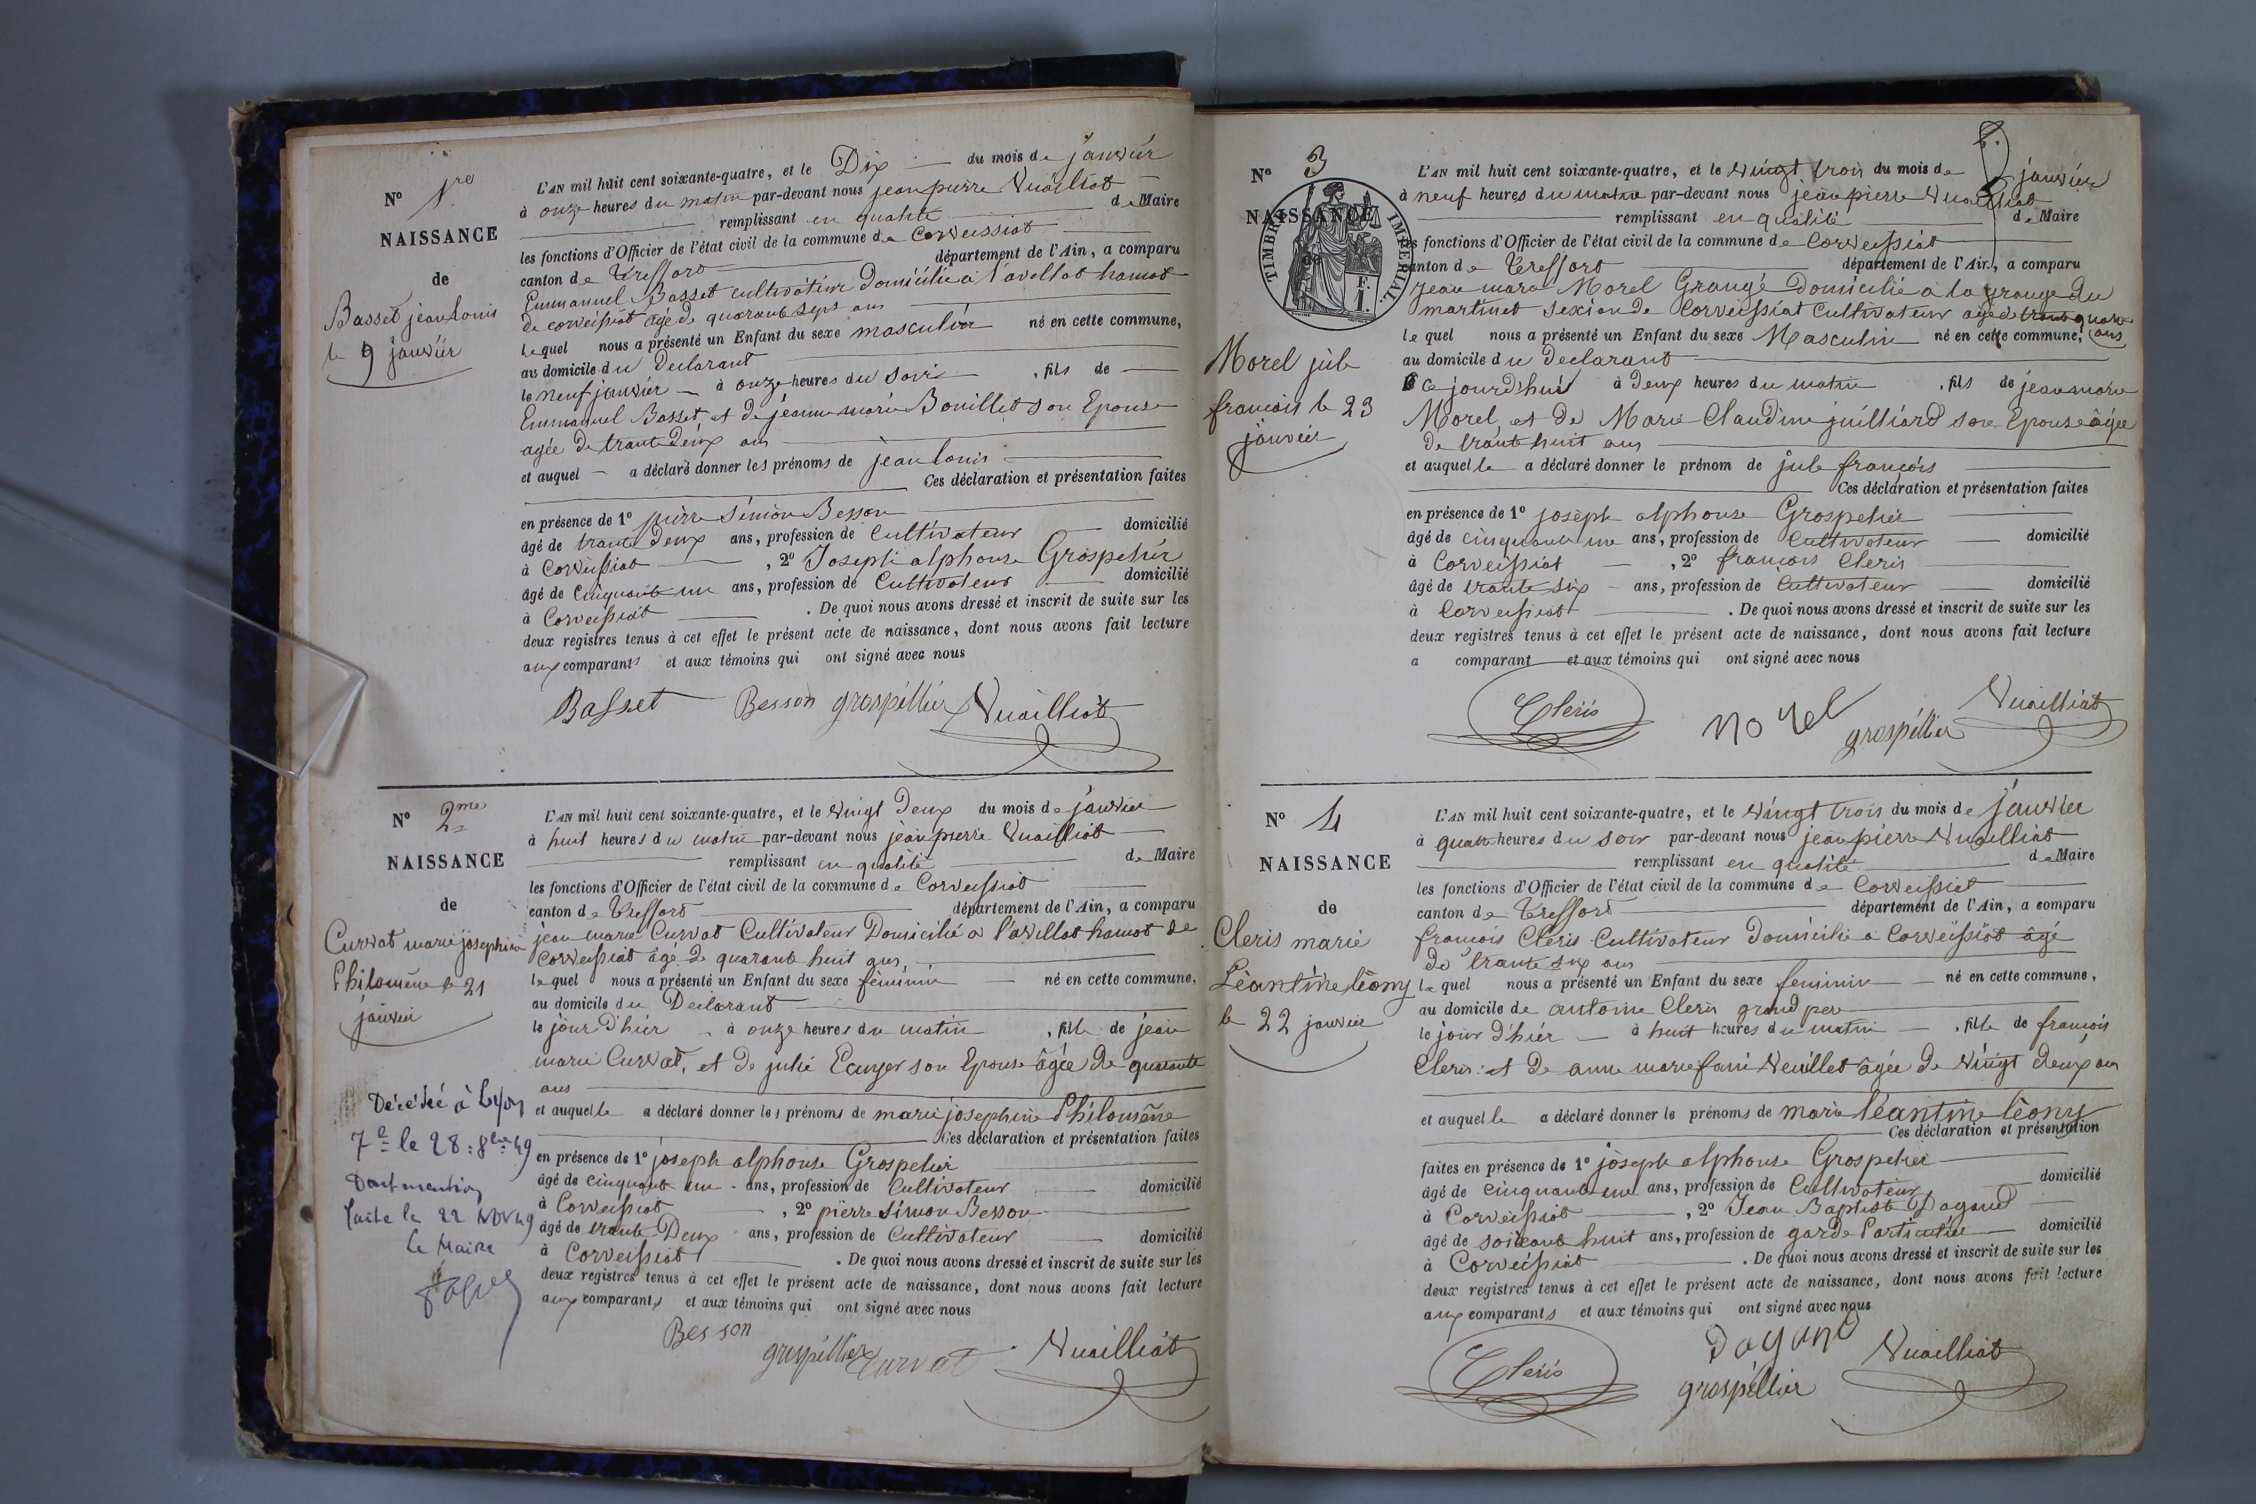 N° 1re
NAISSANCE
de
Basset jean Louis
le 9 janvier
L'AN mil huit cent soixante-quatre, et le Dix du mois de janvier
à onze heures du matin par-devant nous jean pierre Nuailliat
remplissant en qualité de Maire
les fonctions d'Officier de l'état civil de la commune de Corveissiat
canton de Treffort département de l'Ain, a comparu
Emmanuel Basset cultivateur Domicilié a Lavellat hamot
de corveissiat agé de quarante sept ans
lequel nous a présenté un Enfant du sexe masculin né en cette commune,
au domicile du Declarant
le neuf janvier à onze heures du soir, fils de
Emmanuel Basset, et de jeanne marie Bouillet son Epouse
agée de trante deux ans
et auquel a déclaré donner les prénoms de jean Louis
Ces déclaration et présentation faites
en présence de 1° pierre Simon Besson
âgé de trante Deux ans, profession de Cultivateur domicilié
à Corveissiat, 2° Joseph alphonse Grospelier
âgé de Cinquante un ans, profession de Cultivateur domicilié
à Corveissiat. De quoi nous avons dressé et inscrit de suite sur les
deux registres tenus à cet effet le présent acte de naissance, dont nous avons fait lecture
aux comparants et aux témoins qui ont signé avec nous
Basset Besson grospéllier Nuailliat
N° 2me
NAISSANCE
de
Curvat marie josephine
Philomène le 21
janvier
Décédée à Lyon
7e le 28 : 8bre 49
Dont mention
faite le 22 NOV 49
Le Maire
L'AN mil huit cent soixante-quatre, et le vingt Deux du mois de janvier
à huit heures du matin par-devant nous jean pierre Nuailliat
remplissant en qualité de Maire
les fonctions d'Officier de l'état civil de la commune de Corveissiat
canton de Treffort département de l'Ain, a comparu
jean marie Curvat Cultivateur Domicilié a Lavillat hamot de
Corveissiat âge de quarante huit ans
lequel nous a présenté un Enfant du sexe féminin né en cette commune,
au domicile du Declarant
le jour d'hier à onze heures du matin, fille de jean
marie Curvat, et de julie Ecuyer son Epouse âgée de quarante
ans
et auquelle a déclaré donner les prénoms de marie josephine Philomène
Ces déclaration et présentation faites
en présence de 1° joseph alphonse Grospelier
âgé de cinquante un ans, profession de Cultivateur domicilié
à Corveissiat, 2° pierre Simon Besson
âgé de trante Deux ans, profession de Cultivateur domicilié
à Corveissiat. De quoi nous avons dressé et inscrit de suite sur les
deux registres tenus à cet effet le présent acte de naissance, dont nous avons fait lecture
aux comparants et aux témoins qui ont signé avec nous
Besson grospéllier Curvat Nuailliat
N° 3
TIMBRE IMPÉRIAL.
NAISSANCE
de
Morel jule
francois le 23
janvier
L'AN mil huit cent soixante-quatre, et le vingt trois du mois de janvier
à neuf heures du matin par-devant nous jean pierre Nuailliat
remplissant en qualité de Maire
les fonctions d'Officier de l'état civil de la commune de Corveissiat
canton de Treffort département de l'Ain, a comparu
jean marie Morel Grangé Domicilié a la grange du
martinet sexion de Corveissiat Cultivateur agé de quarante ans
le quel nous a présenté un Enfant du sexe Masculin né en cette commune,
au domicile du Declarant
ce jourd'hui à deux heures du matin, fils de jean marie
Morel, et de Marie Claudine juilliard son Epouse âgée
de trante huit ans
et auquelle a déclaré donner le prénom de jule françois
Ces déclaration et présentation faites
en présence de 1° josèph alphonse Grospelier
âgé de cinquante un ans, profession de Cultivateur domicilié
à Corveissiat, 2° françois Cleris
âgé de trante six ans, profession de Cultivateur domicilié
à Corveissiat. De quoi nous avons dressé et inscrit de suite sur les
deux registres tenus à cet effet le présent acte de naissance, dont nous avons fait lecture
a comparant et aux témoins qui ont signé avec nous
Cleris morel grospéllier Nuailliat
N° 4
NAISSANCE
de
Cleris marie
Léantine léony
le 22 janvier
L'AN mil huit cent soixante-quatre, et le vingt trois du mois de janvier
à quatre heures du soir par-devant nous jean pierre Nuailliat
remplissant en qualité de Maire
les fonctions d'Officier de l'état civil de la commune de Corveissiat
canton de Treffort département de l'Ain, a comparu
françois Cleris Cultivateur Domicilié a Corveissiat âgé
de trante six ans
le quel nous a présenté un Enfant du sexe feminin né en cette commune,
au domicile de antoine Cleris grand per
le jour d'hier à huit heures du matin, fille de françois
Cleris et de anne marie fani Neuillet âgée de vingt deux ans
et auquelle a déclaré donner le prénoms de marie léantine léony
Ces déclaration et présentation
faites en présence de 1° josèph alphonse Grospelier
âgé de cinquante un ans, profession de Cultivateur domicilié
à Corveissiat, 2° Jean Baptiste Dagand
âgé de soixante huit ans, profession de garde Particulier domicilié
à Corveissiat. De quoi nous avons dressé et inscrit de suite sur les
deux registres tenus à cet effet le présent acte de naissance, dont nous avons fait lecture
aux comparants et aux témoins qui ont signé avec nous
Cleris Dagand grospéllier Nuailliat